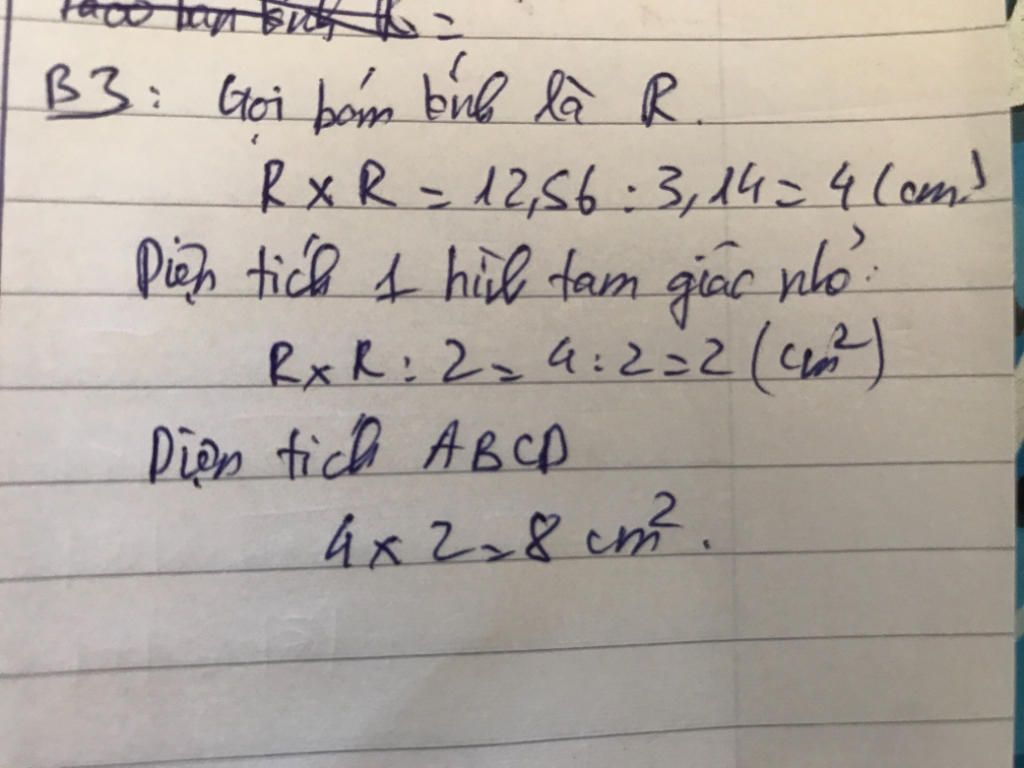 B3: Gọi bán kính là R.
R x R = 12,56 : 3,14 = 4 (cm)
Diện tích 1 hình tam giác nhỏ:
R x R : 2 = 4 : 2 = 2 (cm²)
Diện tích ABCD
4 x 2 = 8 cm².